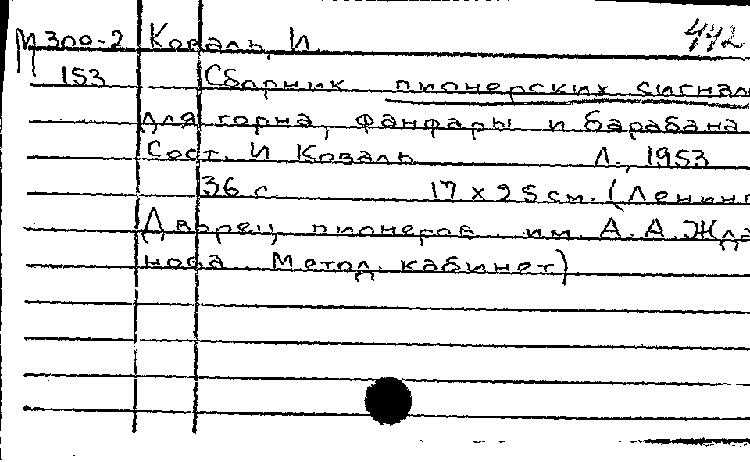 М300-2 Коваль, И. 442
153 Сборник пионерских сигнал
для горна, фанфары и барабана
Сост. И Коваль Л., 1953
36 с 17 x 25 см. (Ленинг
Дворец пионеров им. А. А. Жда
нова. Метод. кабинет)